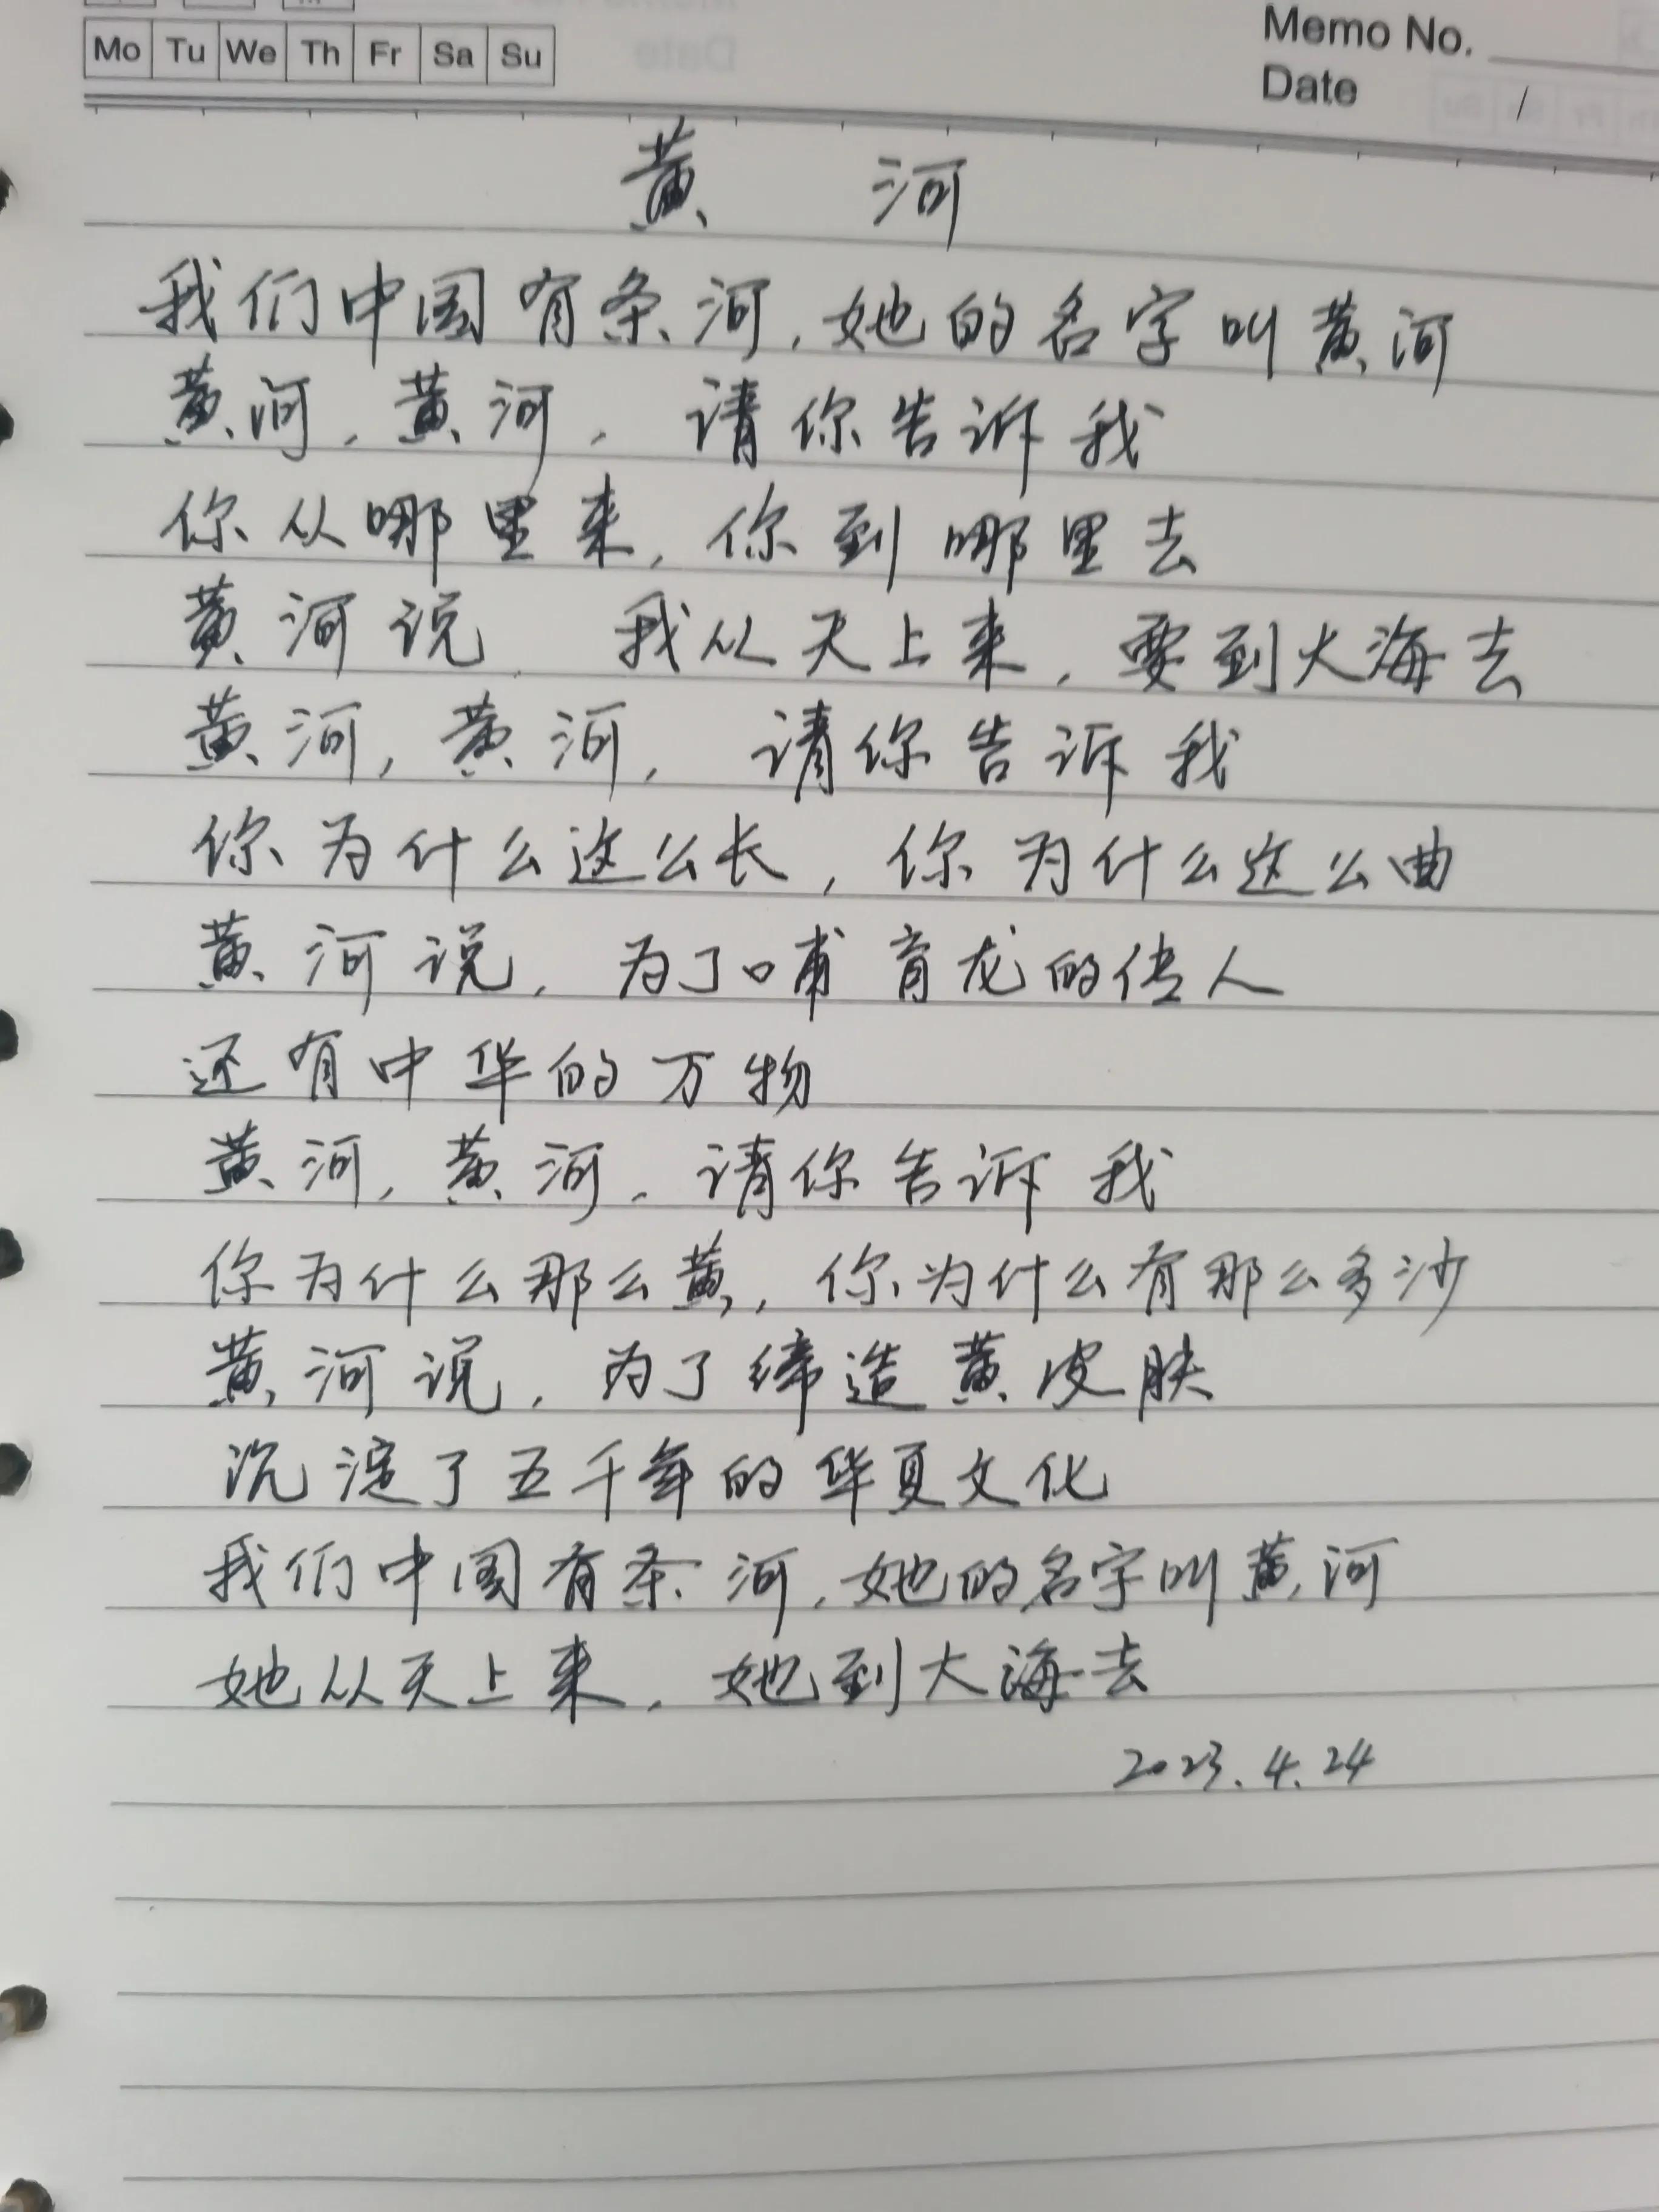 Mo Tu We Th Fr Sa Su
Memo No.
Date /
黄 河
我们中国有条河,她的名字叫黄河
黄河,黄河,请你告诉我
你从哪里来,你到哪里去
黄河说 我从天上来,要到大海去
黄河,黄河,请你告诉我
你为什么这么长,你为什么这么曲
黄河说,为了哺育龙的传人
还有中华的万物
黄河,黄河,请你告诉我
你为什么那么黄,你为什么有那么多沙
黄河说,为了缔造黄皮肤
沉淀了五千年的华夏文化
我们中国有条河,她的名字叫黄河
她从天上来,她到大海去
2023.4.24